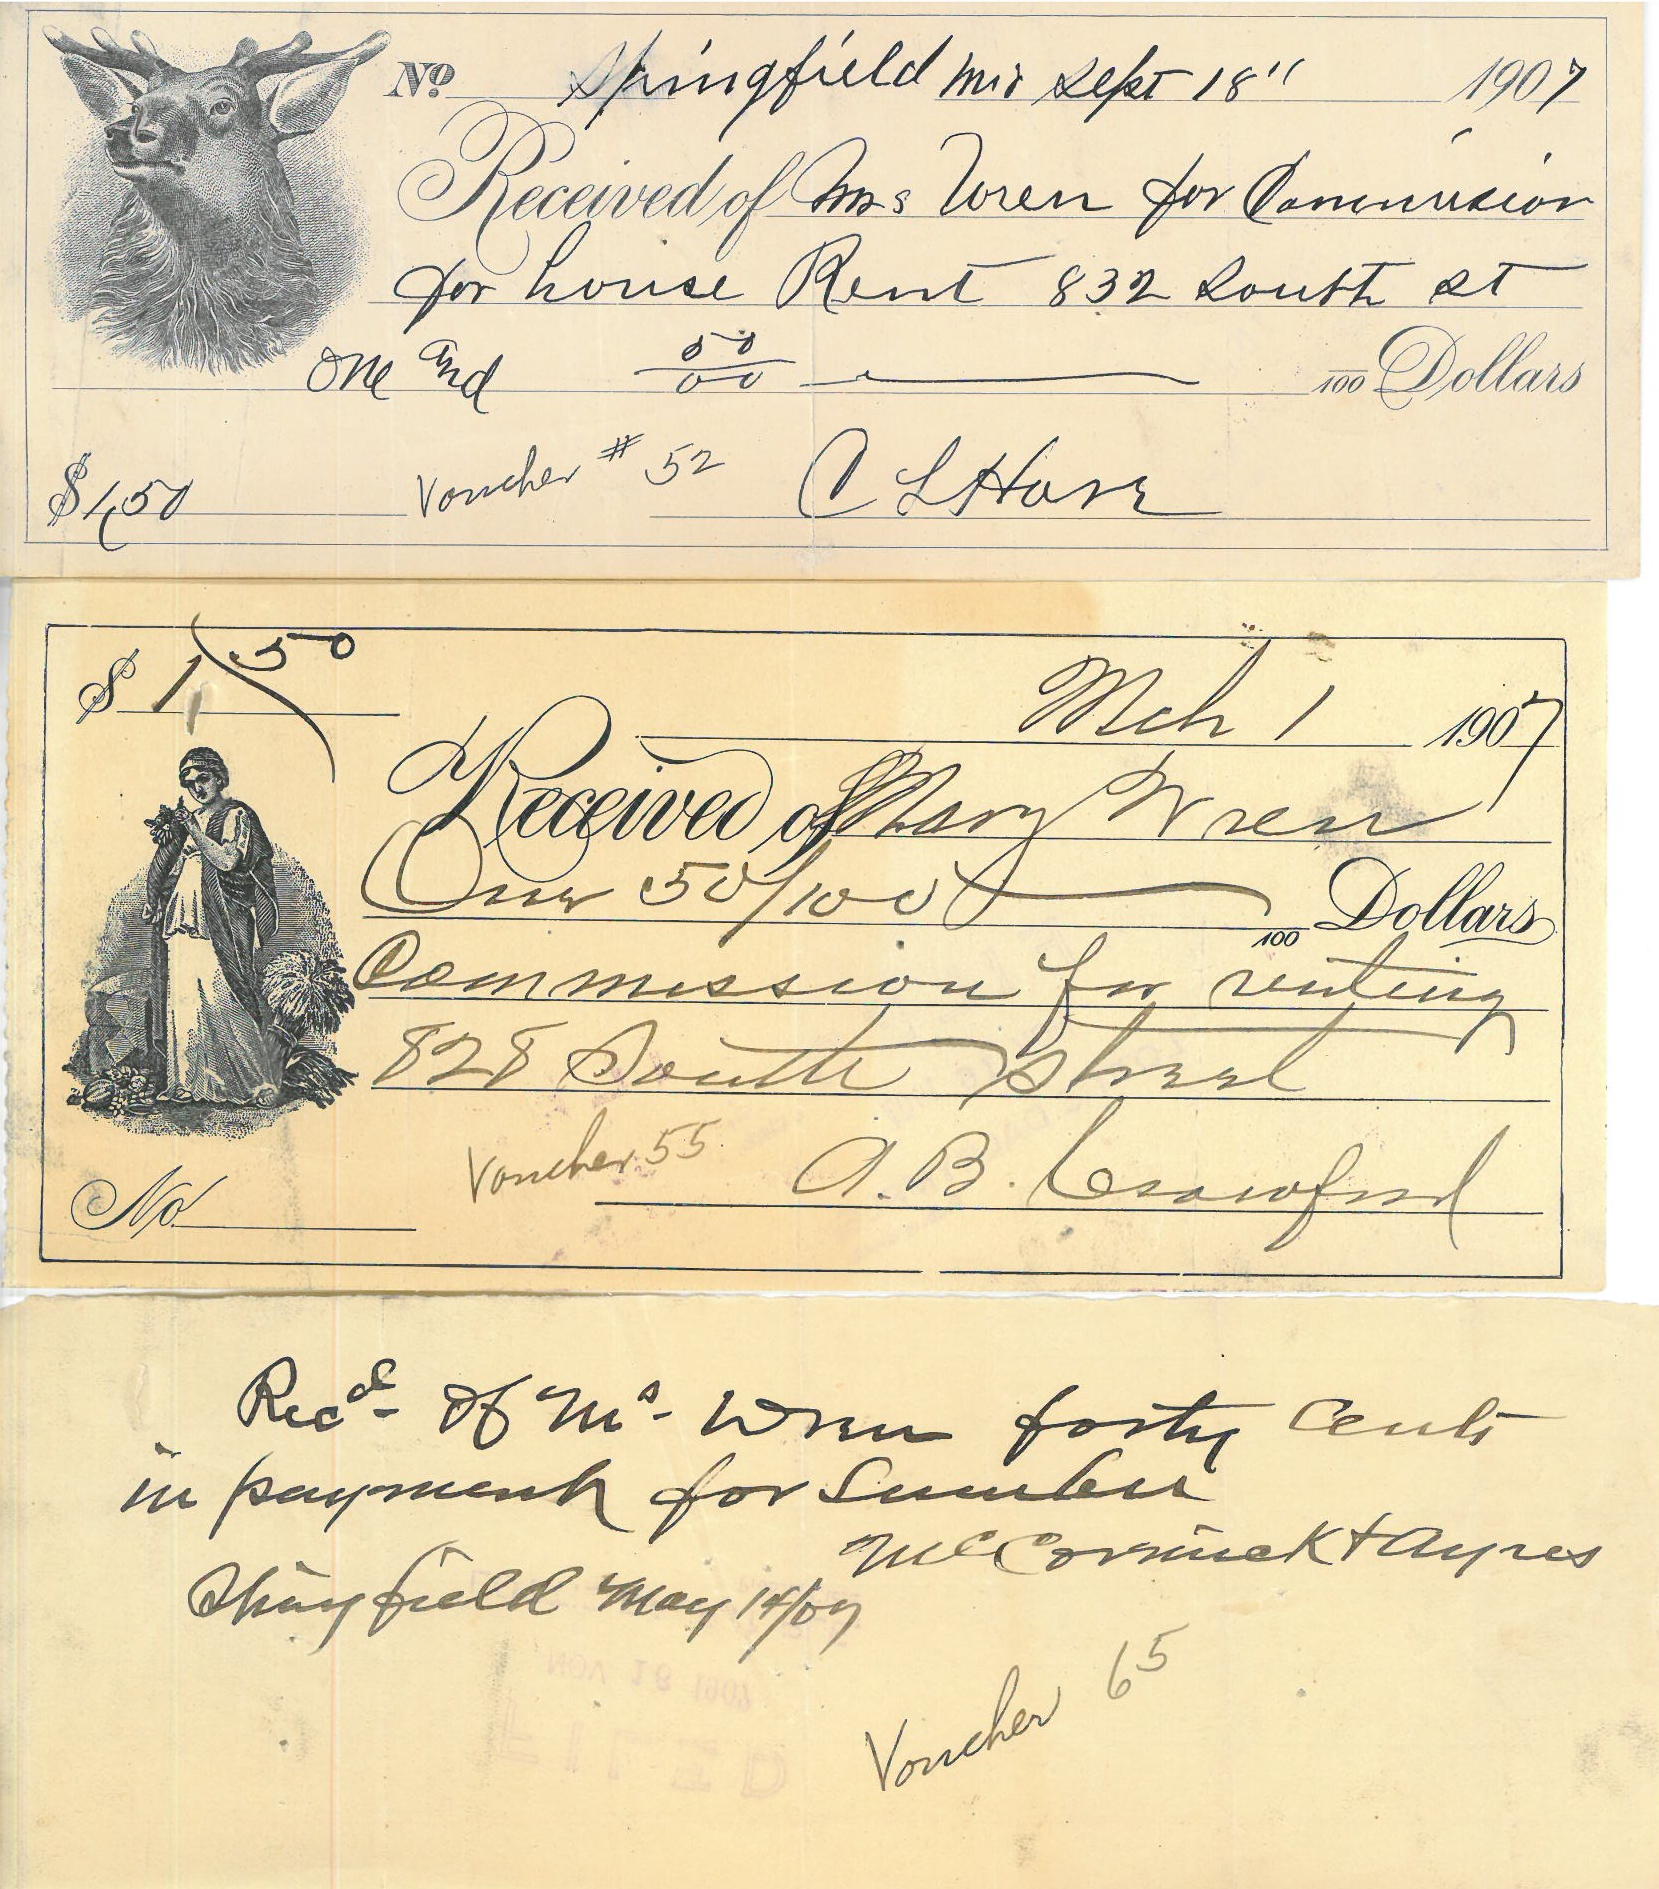 No. Springfield Mis Sept 18" 1907
Received of Mrs Wren for Commision
for house Rent 832 South st
One and 50/00 /100 Dollars
$1,50 Voucher # 52 C L
$ 1,50
Mch 1 1907
Received of Mary Wren
One 50/100 /100 Dollars
Commission for renting
828 South Street
Voucher 55 A. B. Crawford
No.
Recd of Ms Wren forty Cents
in payment for Lumber
McCormick + Ayres
Springfield May 14/07
NOV 18 1907
FILED
Voucher 65